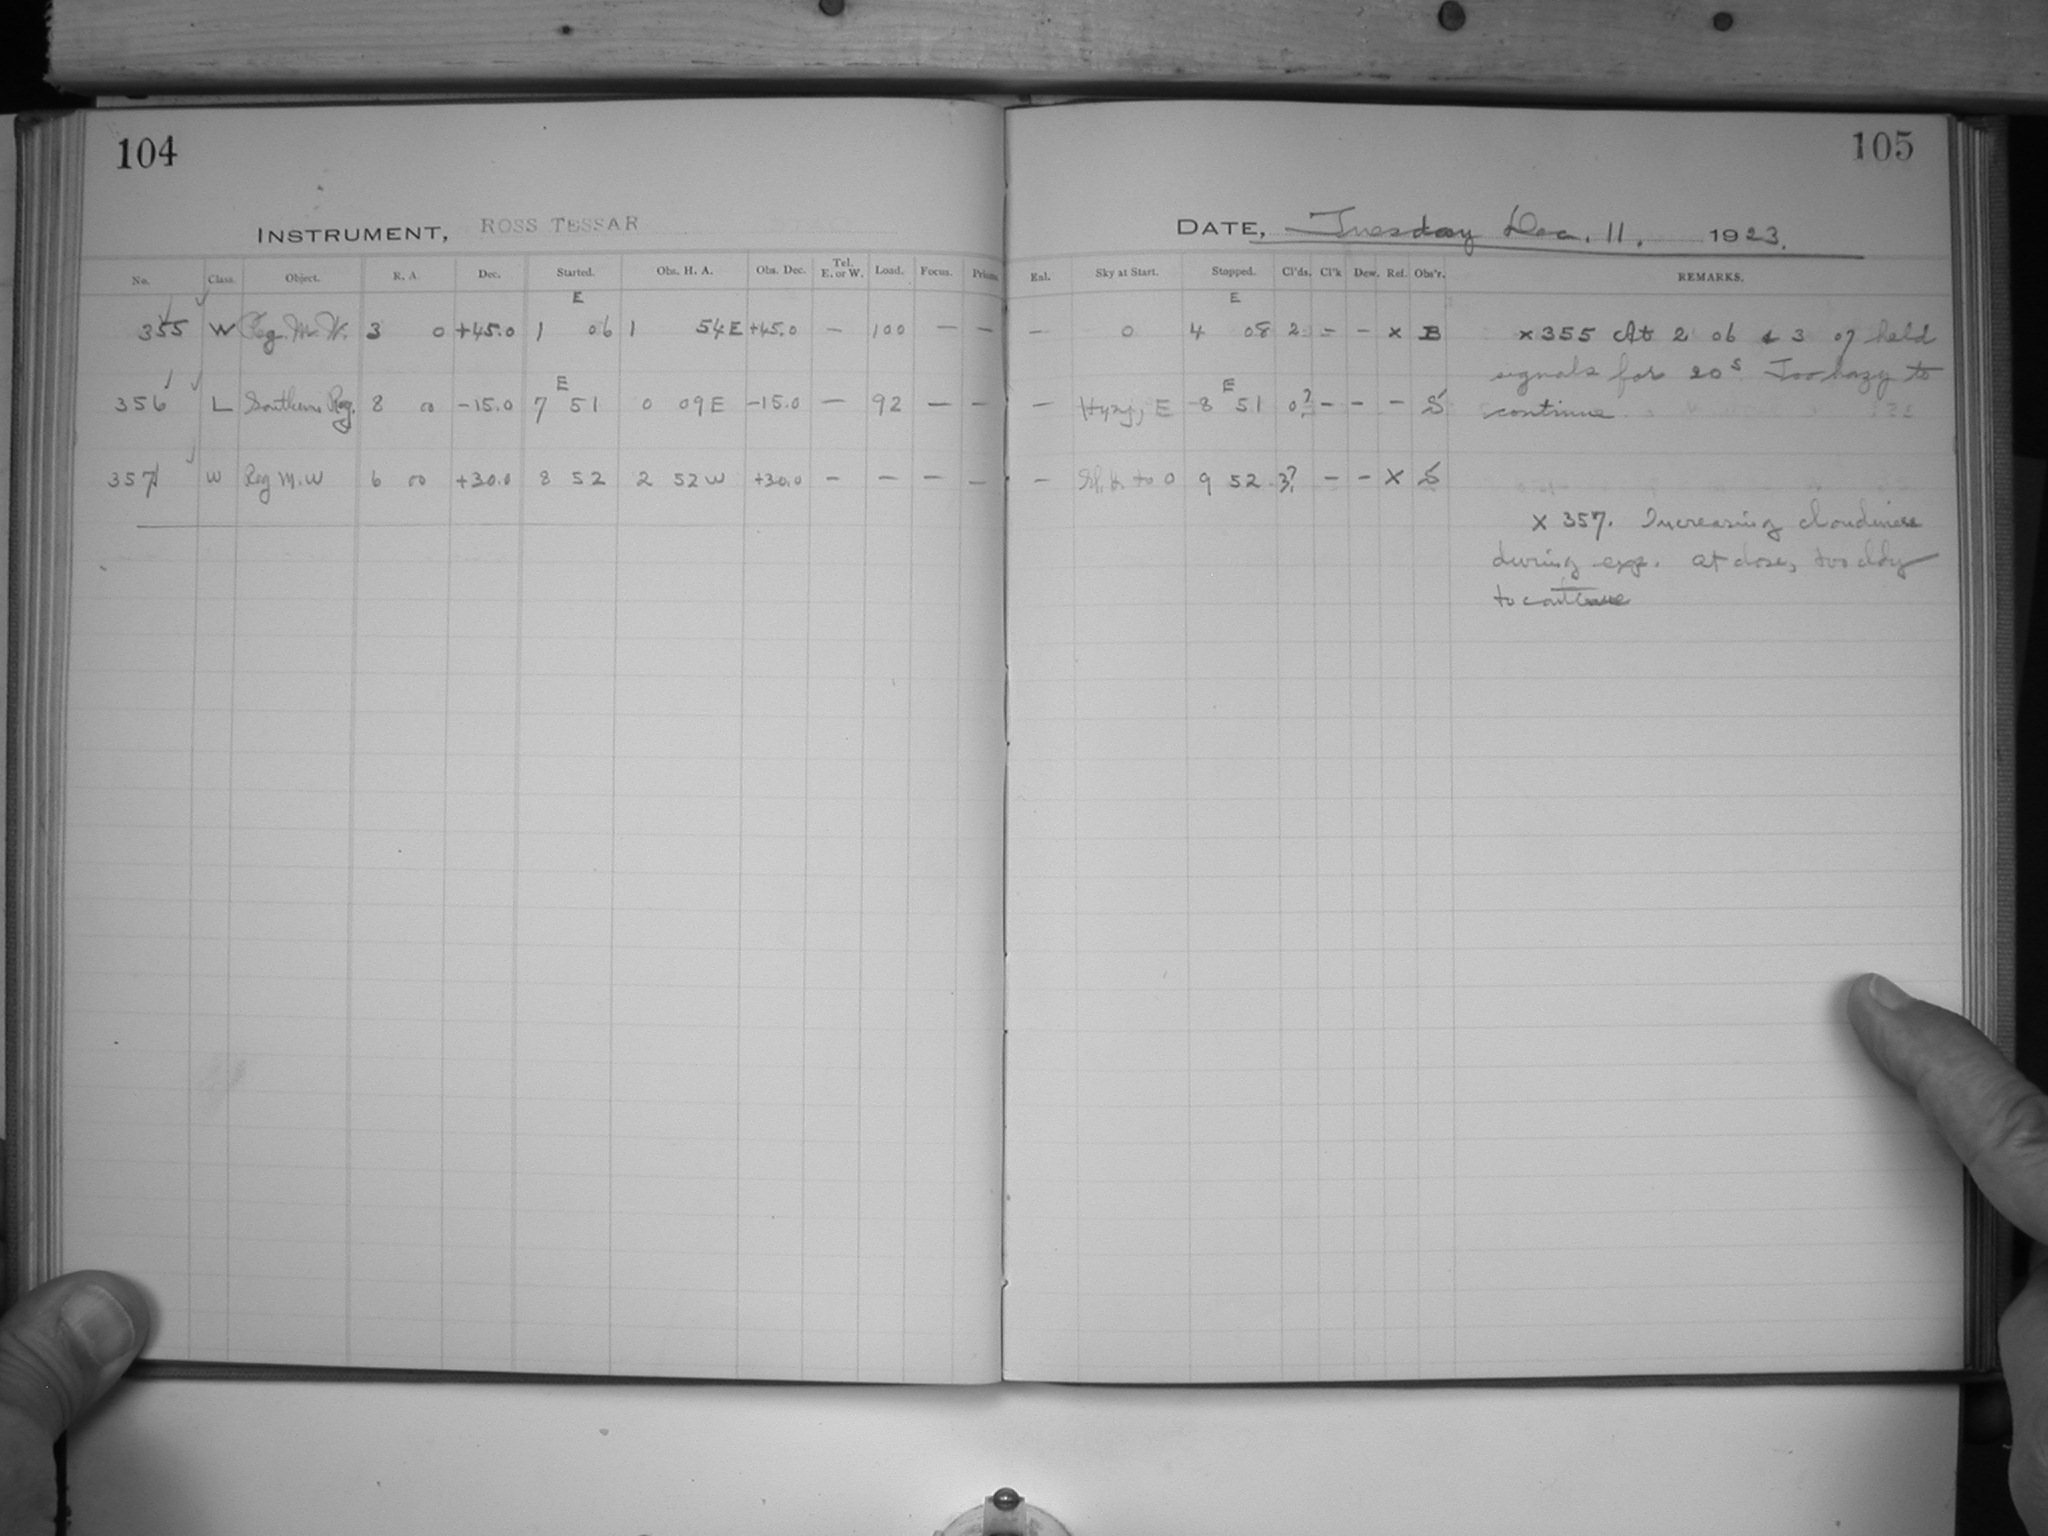 104
INSTRUMENT, ROSS TESSAR
No. Class. Object. R. A. Dec. Started. Obs. H. A. Obs. Dec. Tel. E. or W. Load. Focus. Prism.
E
355 W Reg. M. W. 3 0 +45.0 1 06 1 54 E +45.0 — 100 — —
E
356 L Southern Reg. 8 00 -15.0 7 51 0 09 E -15.0 — 92 — —
357 W Reg M.W 6 00 +30.0 8 52 2 52 W +30.0 — — — —
105
DATE, Tuesday Dec. 11, 1923.
Enl. Sky at Start. Stopped. Cl'ds. Cl'k Dew. Ref. Obs'r. REMARKS.
E
— 0 4 08 2 - - x B x 355 At 2 06 & 3 07 held
signals for 20s. Too hazy to
continue
E
— Hyzy, E 8 51 0? - - - S
— to 0 9 52 3? - - X S
X 357. Increasing cloudiness
during exp. at close, too cldy
to continue